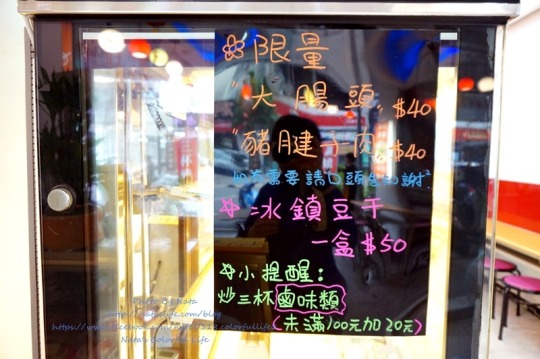 限量
"大腸頭" $40
"豬腱子肉" $40
如有需要請口頭告知謝²
冰鎮豆干
一盒 $50
小提醒:
炒三杯滷味類
(未滿100元加20元)
Photo By Nata
Nata's Colorful Life